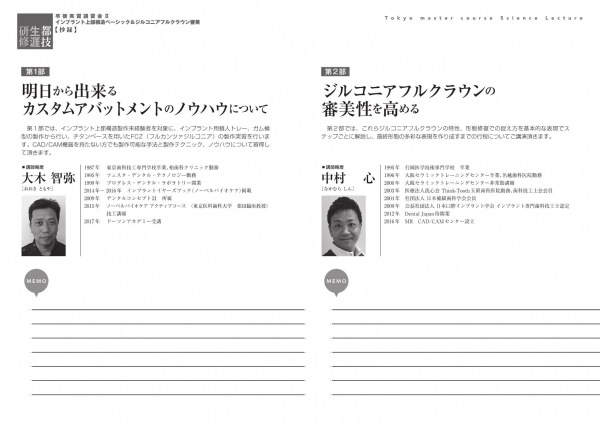 都技
生涯
研修
卒後実習講習会Ⅱ
インプラント上部構造ベーシック&ジルコニアフルクラウン審美
【抄録】
Tokyo master course Science Lecture
第1部
明日から出来る
カスタムアバットメントのノウハウについて
第1部では、インプラント上部構造製作未経験者を対象に、インプラント用個人トレー、ガム模
型の製作から行い、チタンベースを用いたFCZ(フルカンツァジルコニア)の製作実習を行いま
す。CAD/CAM機器を持たない方でも製作可能な手法と製作テクニック、ノウハウについて習得し
て頂きます。
■講師略歴
大木 智弥
(おおき ともや)
1987年 東京歯科技工専門学校卒業、
1995年 フェスタ・デンタル・テクノロジー勤務
1999年 プログレス・デンタル・ラボラトリー開業
2014年~2016年 インプラントイヤーズブック(ノーベルバイオケア)掲載
2009年 デンタルコンセプト21 所属
2015年 ノーベルバイオケア アクティブコース
技工講師
2017年 ドーマンアカデミー受講
MEMO
第2部
ジルコニアフルクラウンの
審美性を高める
第2部では、これらジルコニアフルクラウンの特性、形態修審での捉え方を基本的な表現でス
テップごとに解説し、最終形態の多彩な表現を作り成すまでの行程についてご講演頂きます。
■講師略歴
中村 心
(なかむら しん)
1995年 行岡医学技術専門学校 卒業
1996年 大阪セラミックトレーニングセンター卒業、
2000年 大阪セラミックトレーニングセンター
2003年 医療法人茂心会 Think-Teeth 友歯科医院勤務、歯科技工士会会員
2004年 社団法人 日本補綴歯科学会会員
2009年 公益社団法人 日本口腔インプラント学会 インプラント専門歯科技工士認定
2012年 Dental Japan 開業
2016年 MR CAD/CAMセンター設立
MEMO